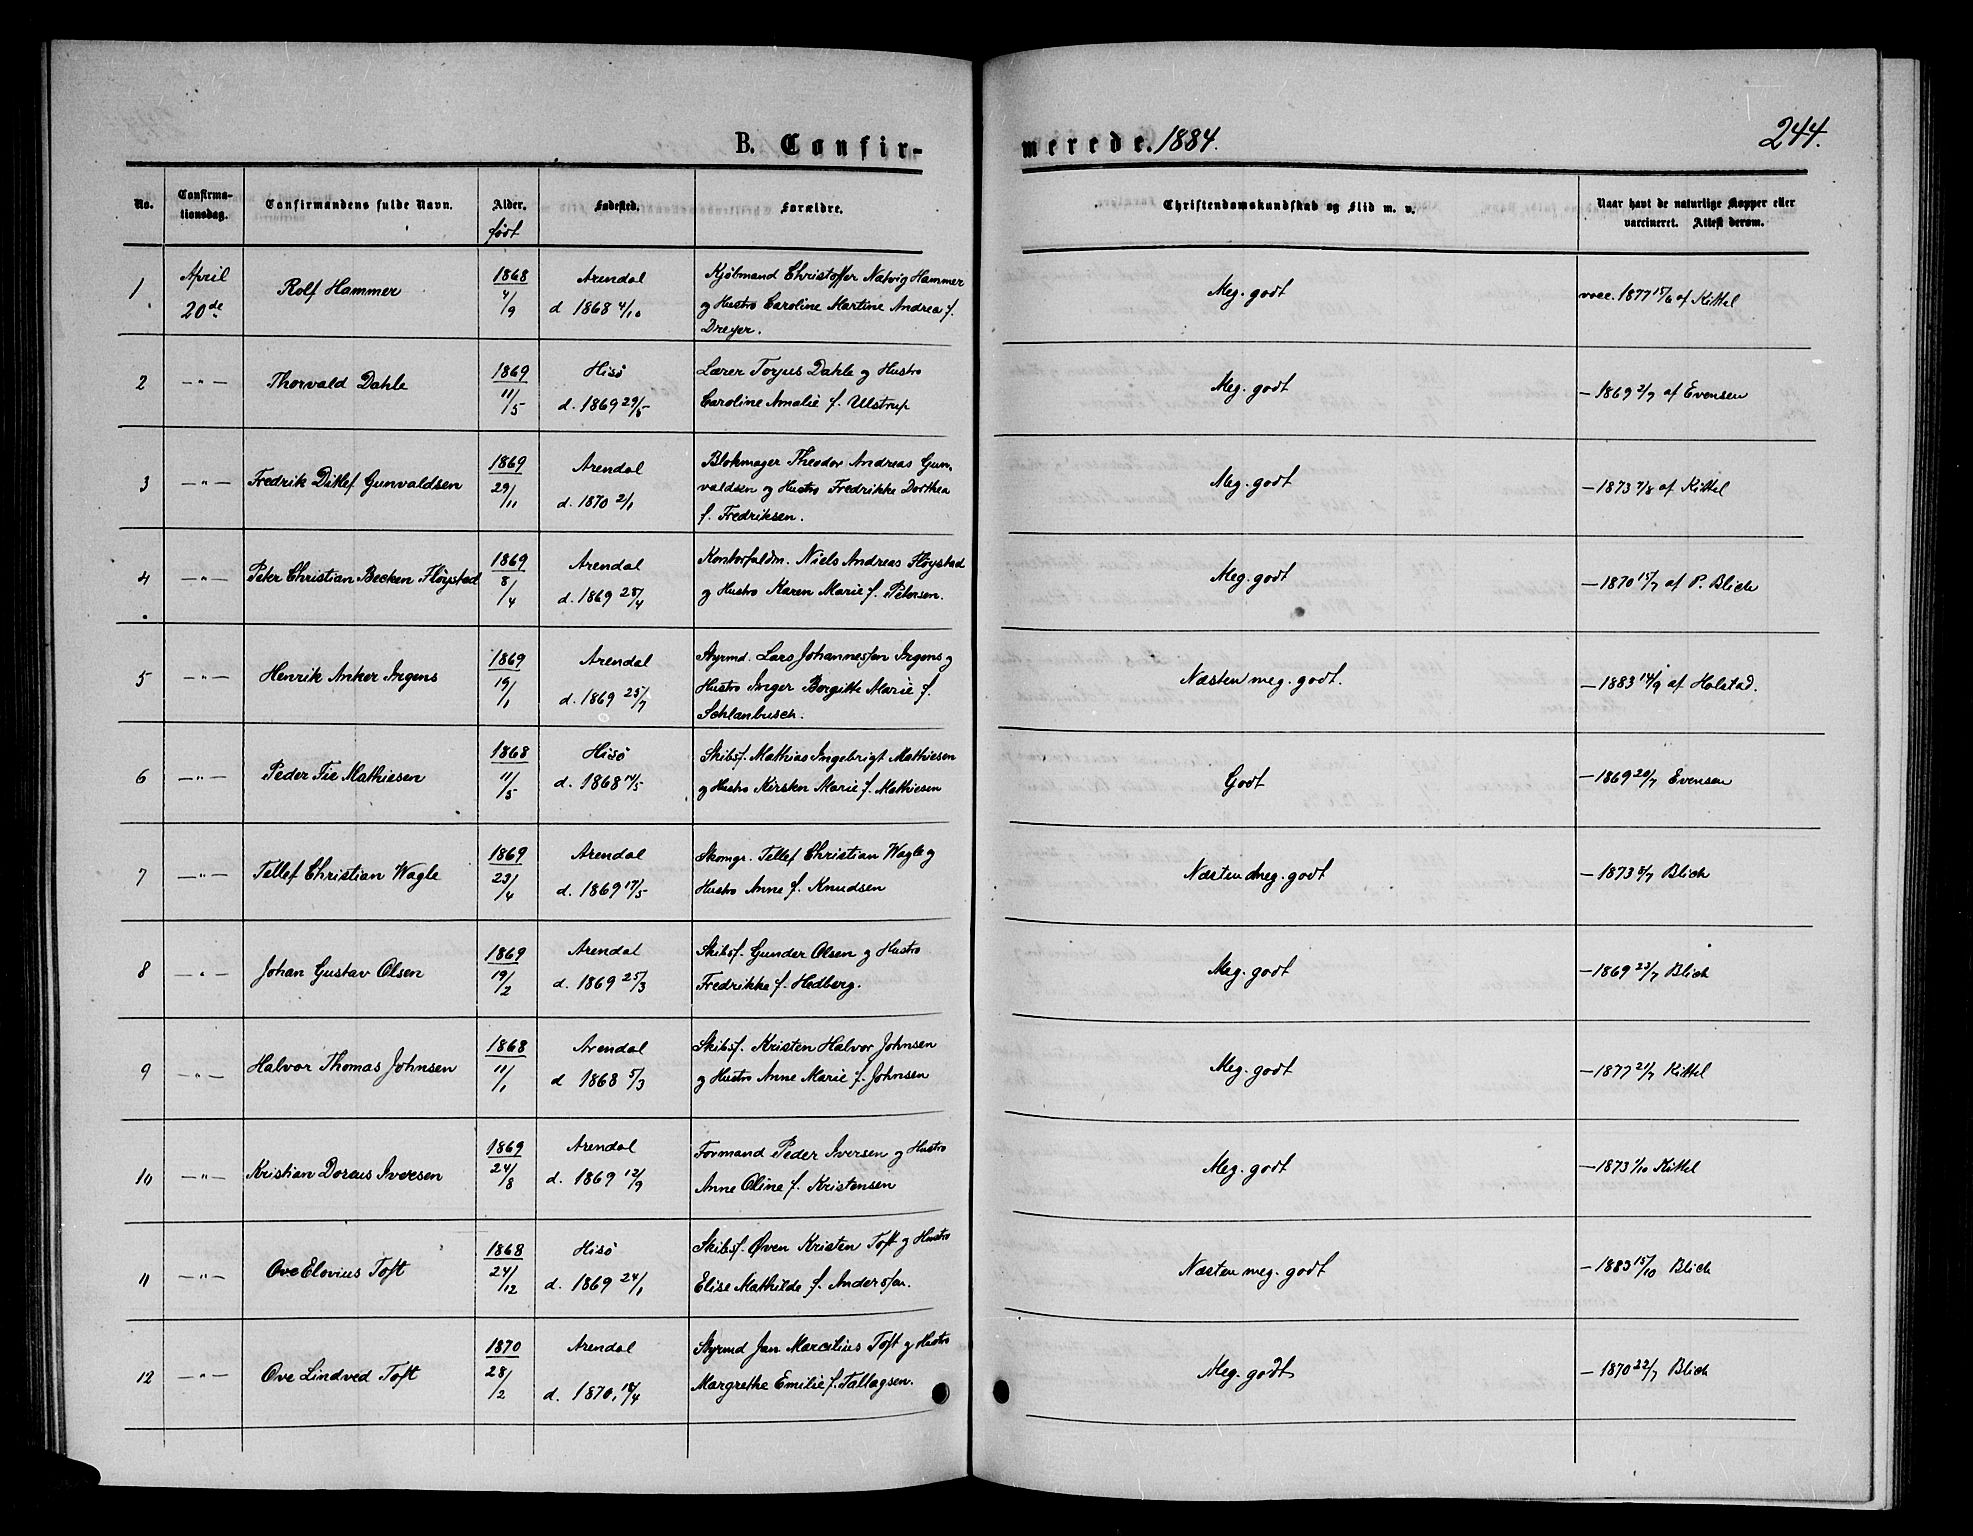 244.
B. Confirmerede. 1884.
No. Confirmationsdag. Confirmandens fulde Navn. Alder. født Fødested. Forældre. Christendomskundskab og Flid m. v. Naar havt de naturlige Kopper eller vaccineret. Attest derom.
1 April 20de Rolf Hammer 1868 4/9 Arendal Kjøbmand Christoffer Natvig Hammer Meg. godt vacc. 1877 15/6 af Kittel
d 1868 4/10 og Hustro Caroline Martine Andrea f.
Dreyer.
2 —"— Thorvald Dahle 1869 11/5 Hisø Lærer Torjus Dahle og Hustro Meg. godt — 1869 2/7 af Evensen
d. 1869 29/5 Caroline Amalie f. Ulstrup
3 —"— Fredrik Ditlef Gunvaldsen 1869 29/11 Arendal Blokmager Theodor Andreas Gun- Meg. godt — 1873 7/8 af Kittel
d. 1870 2/1 valdsen og Hustro Fredrikke Dorthea
f. Fredriksen.
4 —"— Peter Christian Becken Fløystad 1869 8/4 Arendal Kontorfuldm. Niels Andreas Fløystad Meg. godt — 1870 15/7 af P. Blich
d. 1869 28/4 og Hustro Karen Marie f. Petersen.
5 —"— Henrik Anker Irgens 1869 19/1 Arendal Styrmd. Lars Johannessen Irgens og Næsten meg. godt. — 1883 14/9 af Holstad.
d. 1869 25/7 Hustro Inger Bergitte Marie f.
Schlanbusch.
6 —"— Peder Fie Mathiesen 1868 11/5 Hisø Skibsf. Mathias Ingebrigt Mathiesen Godt — 1869 20/7 Evensen
d. 1868 14/5 og Hustro Kirsten Marie f. Mathiesen
7 —"— Tellef Christian Wagle 1869 23/4 Arendal Skomgr. Tellef Christian Wagle og Næsten meg. godt — 1873 5/7 Blich
d. 1869 17/5 Hustro Anne f. Knudsen
8 —"— Johan Gustav Olsen 1869 19/2 Arendal Skibsf. Gunder Olsen og Hustro Meg. godt — 1869 23/7 Blich
d. 1869 25/3 Fredrikke f. Hedberg.
9 —"— Halvor Thomas Johnsen 1868 11/1 Arendal Skibsf. Kristen Halvor Johnsen Meg. godt — 1877 21/7 Kittel
d 1868 5/3 og Hustro Anne Marie f. Johnsen
10 —"— Kristian Doreus Iversen 1869 24/8 Arendal Formand Peder Iversen og Hustro Meg. godt — 1873 1/10 Kittel
d. 1869 12/9 Anne Oline f. Kristensen
11 —"— Ove Elovius Toft 1868 24/12 Hisø Skibsf. Øven Kristen Toft og Hustro Næsten meg. godt — 1883 15/10 Blich
d. 1869 24/1 Elise Mathilde f. Anderssen.
12 —"— Ove Lindved Toft 1870 28/2 Arendal Styrmd Jan Marcilius Toft og Hustro Meg. godt — 1870 22/7 Blich
d. 1870, 18/4 Margrethe Emilie f. Tallagsen.